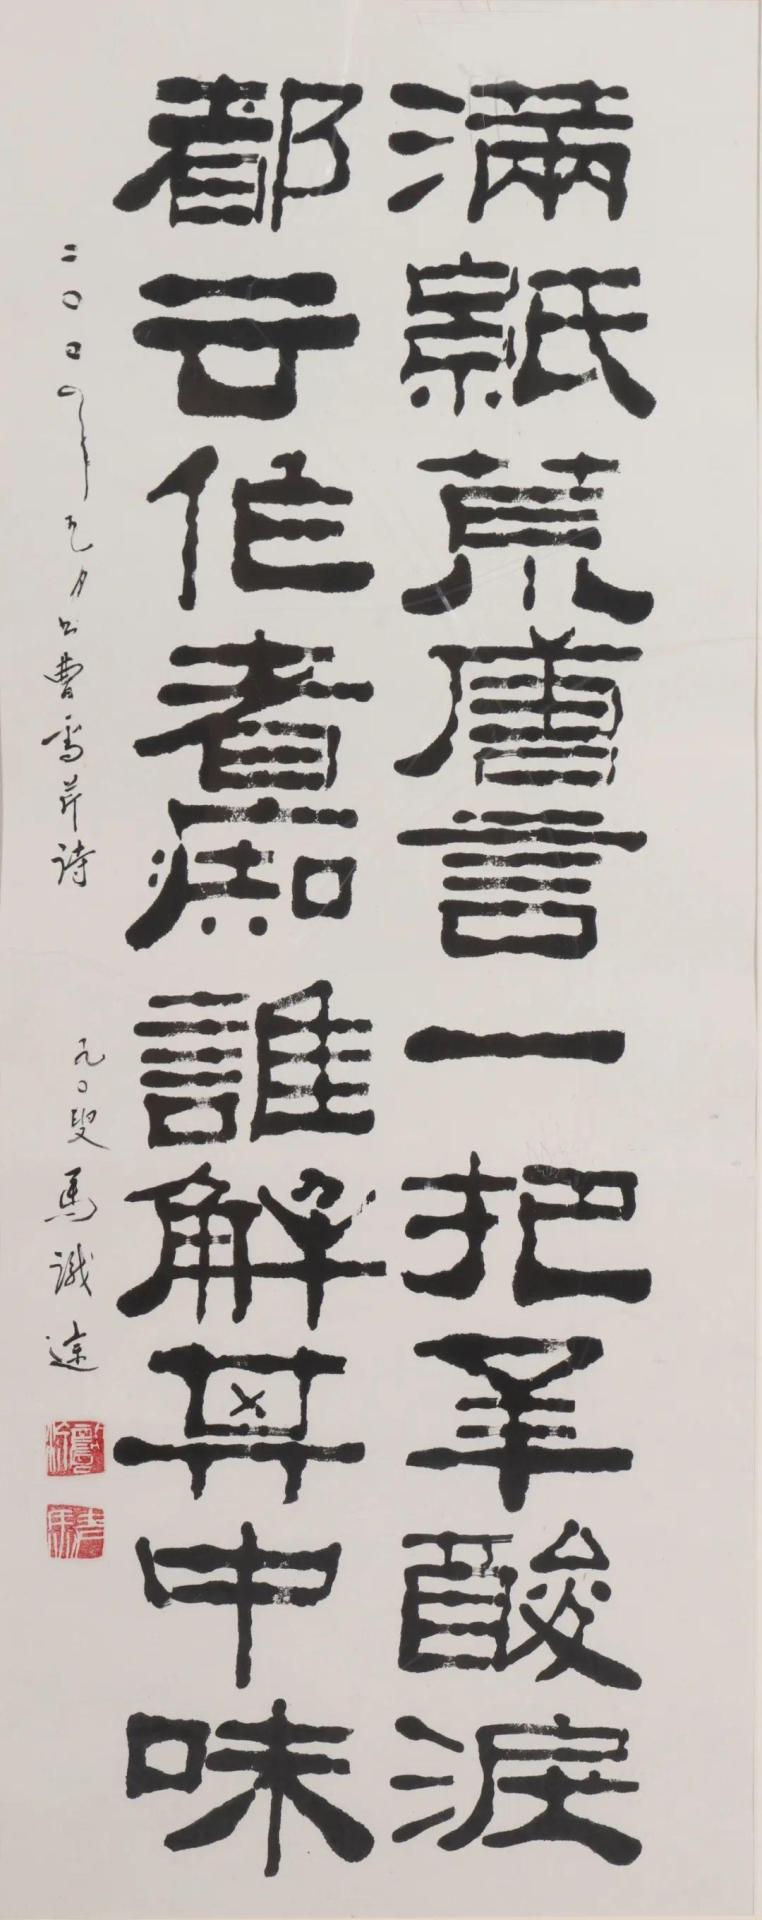 滿紙荒唐言一把辛酸淚
都云作者痴誰解其中味
二〇〇四年元月书曹雪芹诗
九〇叟馬識途
識途
老馬